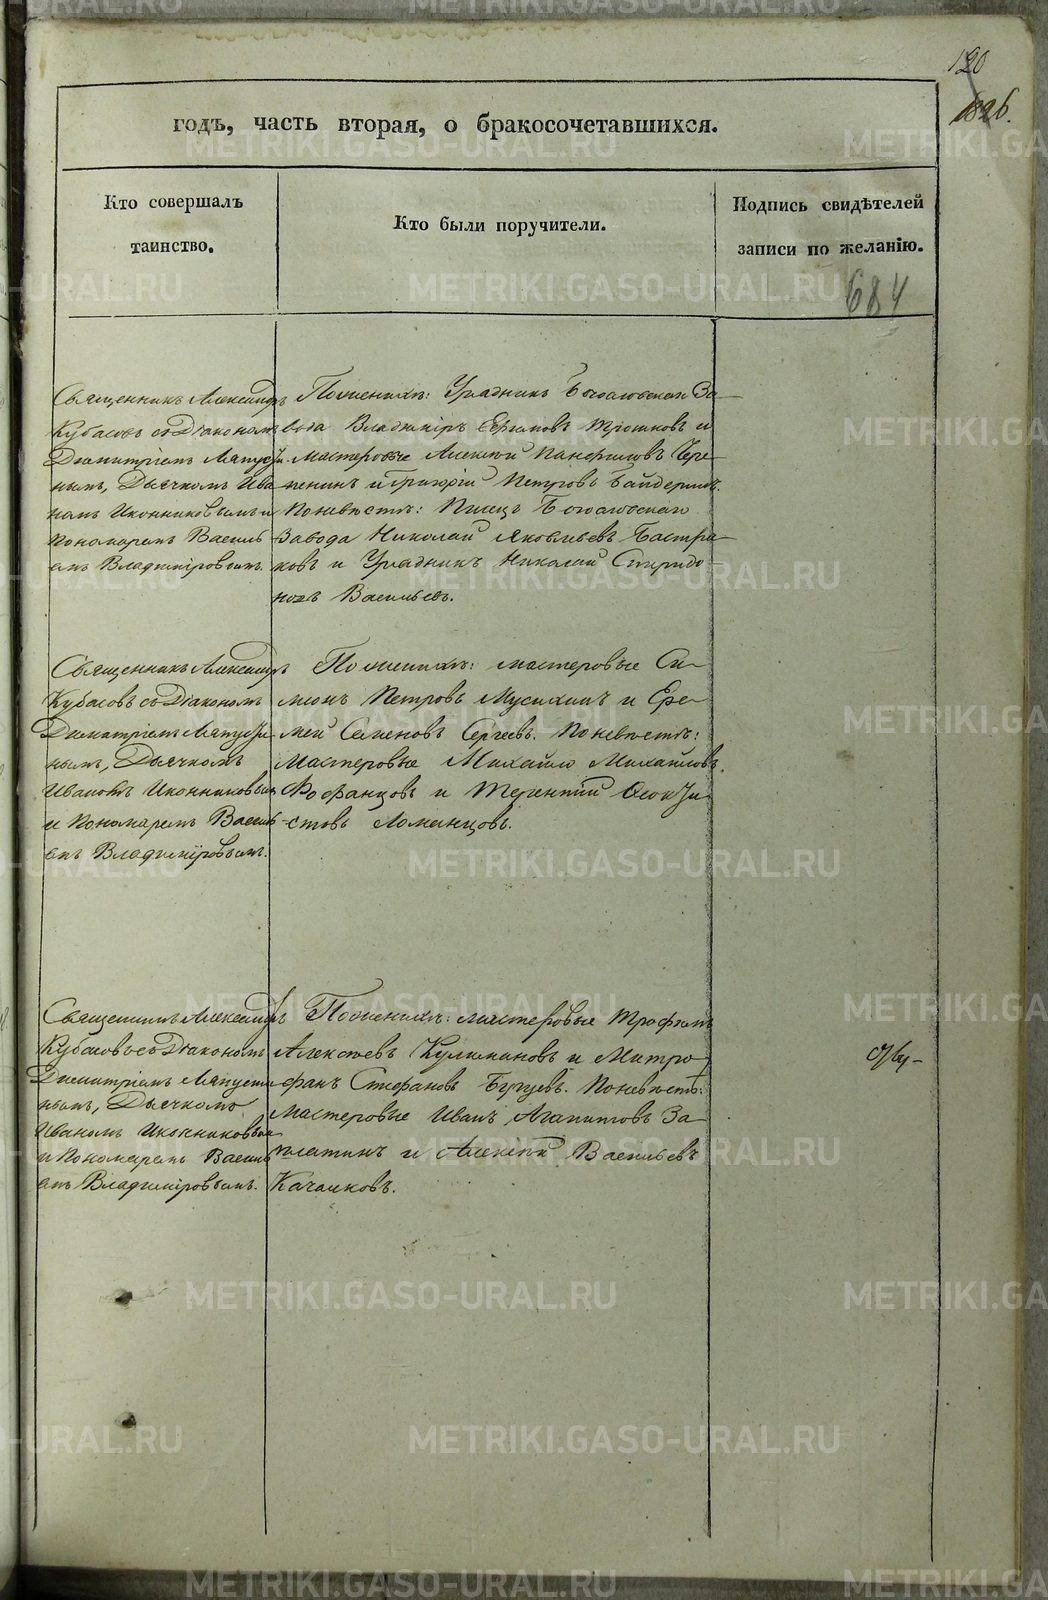 120
1826.
годъ, часть вторая, о бракосочетавшихся.
Кто совершалъ
таинство.
Кто были поручители.
Подпись свидѣтелей
записи по желанію.
684
Священникъ Александръ
Кубасовъ съ Діакономъ
Димитріемъ
нымъ, Дьячкомъ Ива
номъ Иконниковымъ и
Пономаремъ Василь
емъ Владиміровымъ.
По женихѣ: Урядникъ Богословскаго За-
вода Владиміръ Трошковъ и
мастеровые Алексѣй Панфиловъ Чере
пенинъ и Григорій Петровъ
По невѣстѣ: Писецъ Богословскаго
Завода Николай Яковлевъ Бастра-
ковъ и Урядникъ Николай Спиридо-
новъ Васильевъ.
Священникъ Александръ
Кубасовъ съ Діакономъ
Димитріемъ
нымъ, Дьячкомъ
Иваномъ Иконниковымъ
и Пономаремъ Василь
емъ Владиміровымъ.
По женихѣ: мастеровые Си-
меонъ Петровъ Мусихинъ и Ере-
мей Семеновъ Сергеевъ. По невѣстѣ:
Мастеровые Михайло Михайловъ
и Терентій
стовъ Ломанцовъ.
Священникъ Александръ
Кубасовъ съ Діакономъ
Димитріемъ
нымъ, Дьячкомъ
Иваномъ Иконниковымъ
и Пономаремъ Василь
емъ Владиміровымъ.
По женихѣ: мастеровые Трофимъ
Алексѣевъ и Митро
фанъ Стефановъ По невѣстѣ:
мастеровые Иванъ Агапитовъ За-
платинъ и Алексѣй Васильевъ
Качалковъ.
METRIKI.GASO-URAL.RU